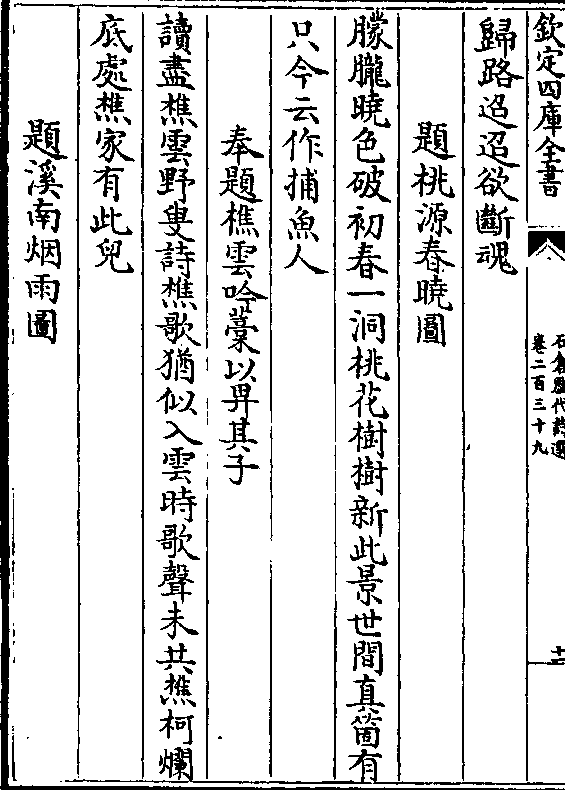 欽定四庫全書
石倉歷代詩選
卷二百三十九
歸路迢迢欲斷魂
題桃源春曉圖
朦朧曉色破初春一洞桃花樹樹新此景世間真箇有
只今云作捕魚人
奉題樵雲吟藁以畀其子
讀盡樵雲野叟詩樵歌猶似入雲時歌聲未共樵柯爛
底處樵家有此兒
題溪南烟雨圖